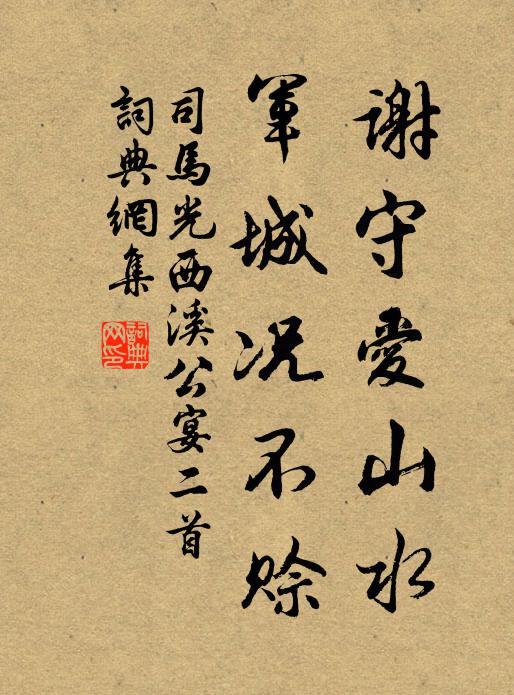 謝守愛山水
軍城況不賒
司馬光西溪公宴二首
詞典網集
詞典
网印